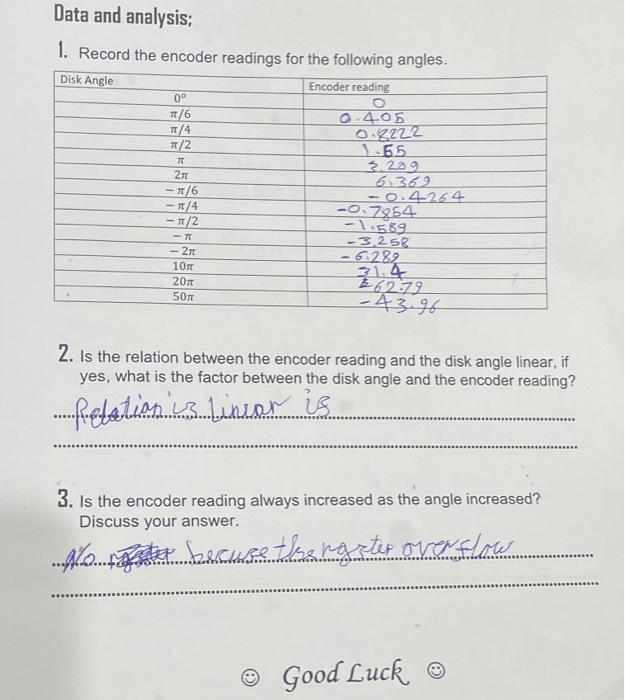 Data and analysis;
1. Record the encoder readings for the following angles.
Disk Angle Encoder reading
0° 0
π/6 0.405
π/4 0.8222
π/2 1.65
π 3.209
2π 6.369
− π/6 -0.4264
− π/4 -0.7854
− π/2 -1.589
− π -3.258
− 2π -6.289
10π 31.4
20π 62.79
50π -43.96
2. Is the relation between the encoder reading and the disk angle linear, if
yes, what is the factor between the disk angle and the encoder reading?
Relation is linear is
3. Is the encoder reading always increased as the angle increased?
Discuss your answer.
No becuse the rgster overflow
☺ Good Luck ☺